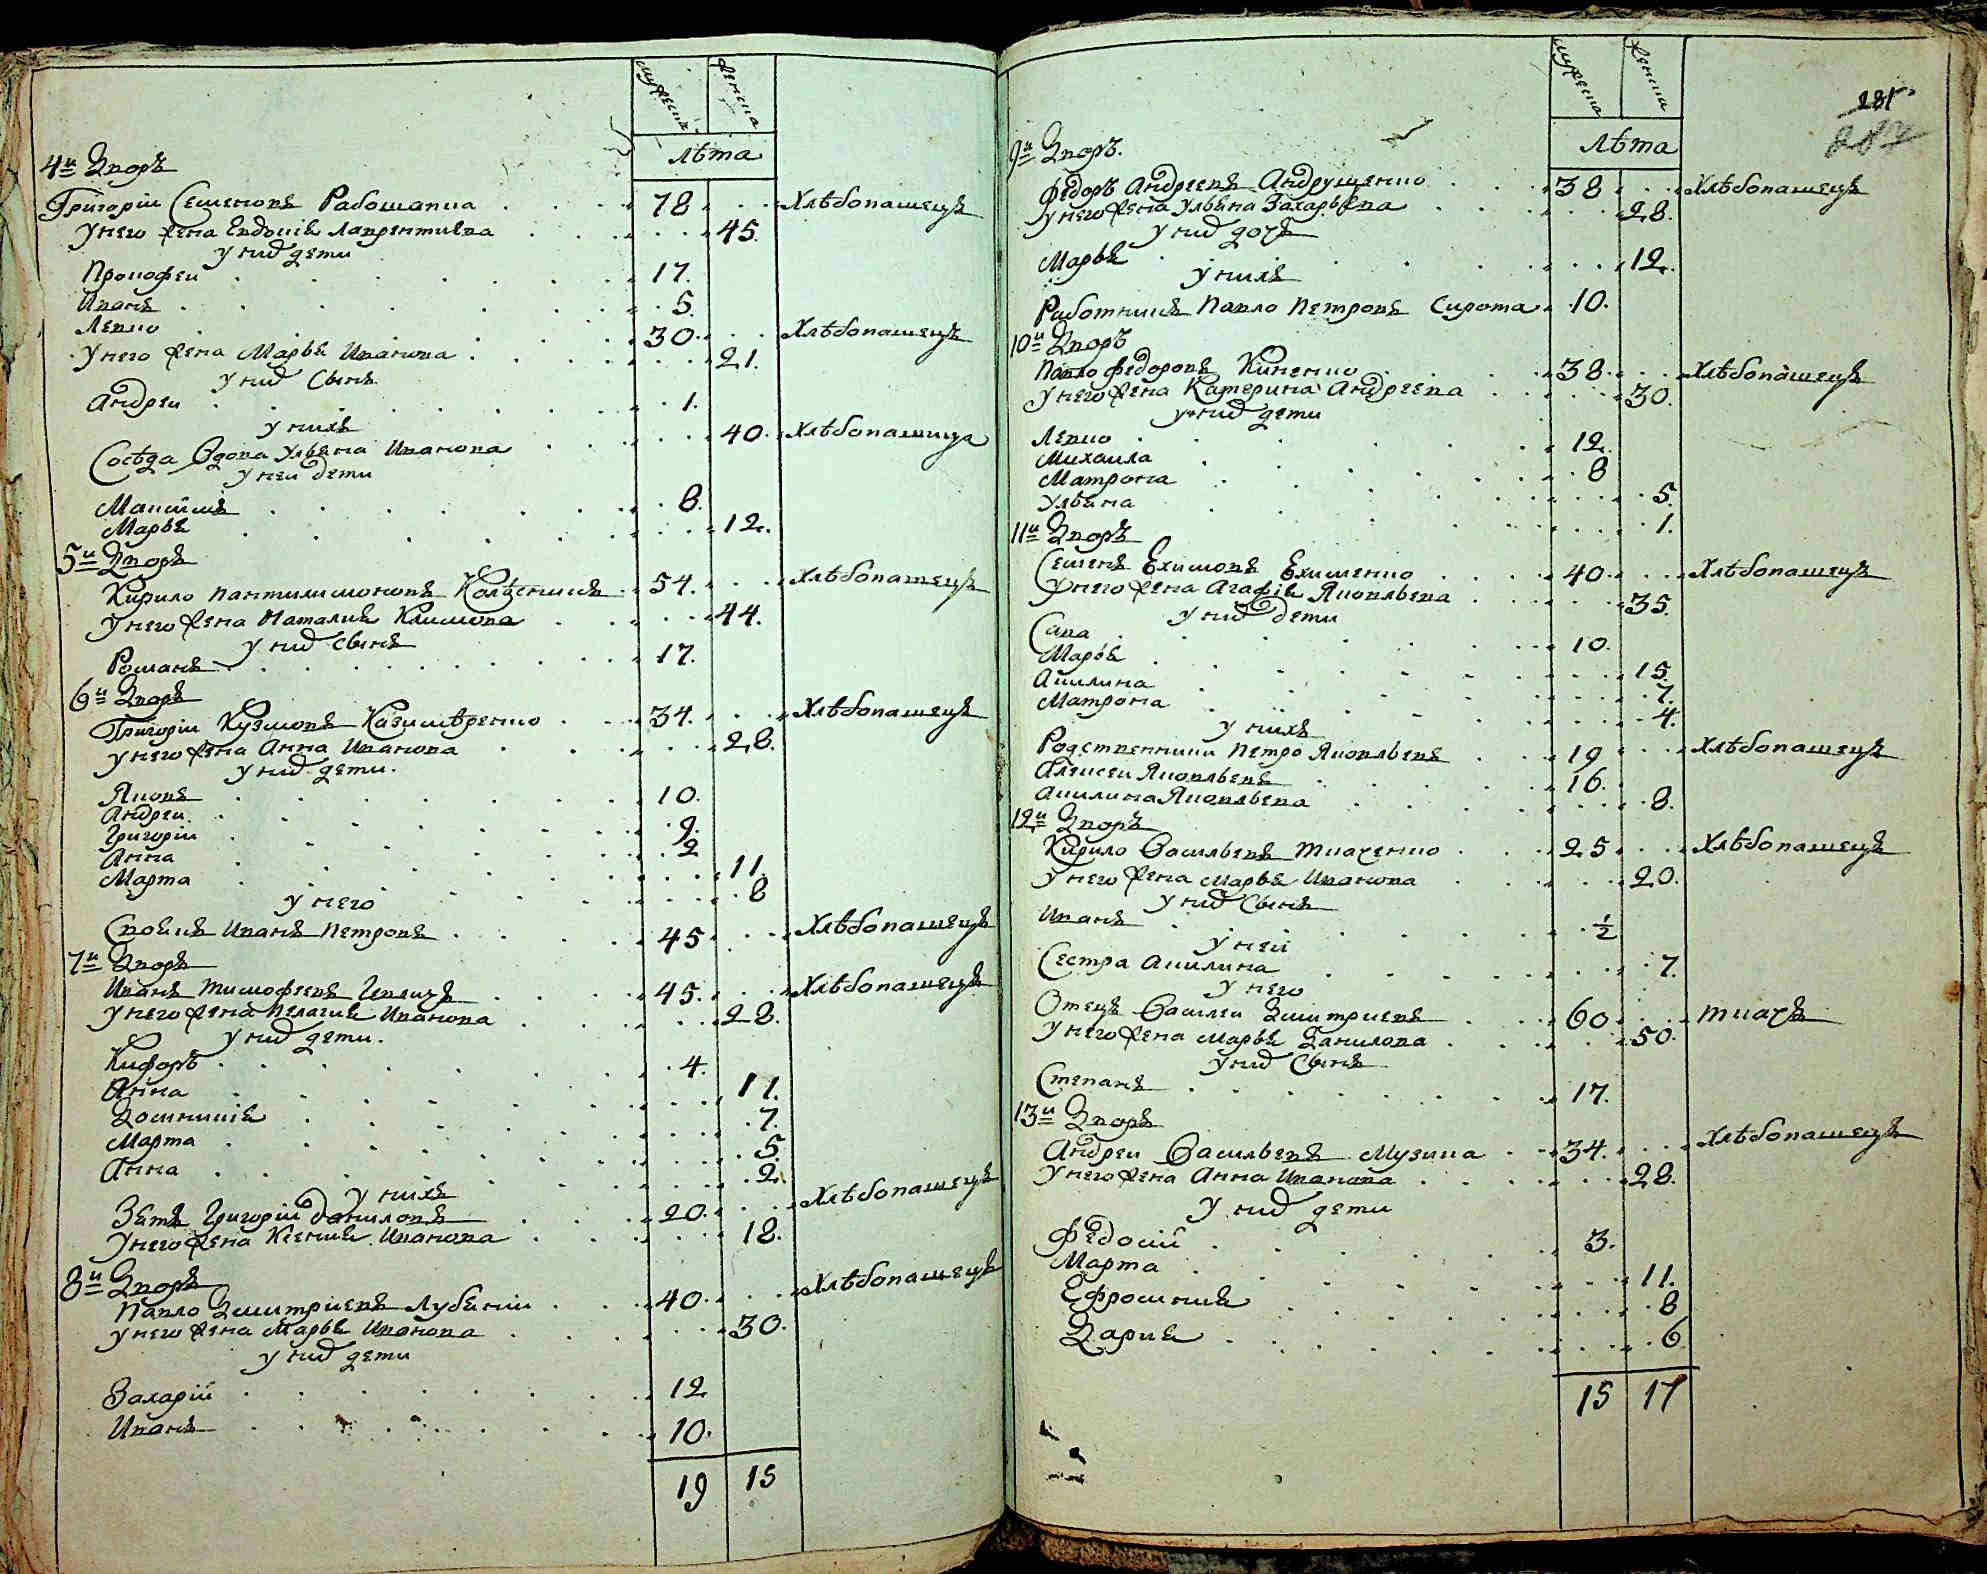 мужеска женска
лѣта
4й Дворъ
Григорій Семеновъ Рабошапка 78 Хлѣбопашецъ
У него жена Евдокіѣ Лаврентиева 45.
у них дети
Прокофеи 17.
Иванъ 5.
Левко 30. Хлѣбопашецъ
У него жена Марья Иванова 21.
у них Сынъ
Андреи 1.
у нихъ
Соседа Вдова Ульѣна Иванова 40. Хлѣбопашица
у неи дети
Маѯимъ 8.
Марья 12.
5й Дворъ
Кирило Пантилимоновъ 54. Хлѣбопашецъ
У него жена Наталиѣ Климова 44.
у них Сынъ
Романъ 17.
6й Дворъ
Григорій Кузмовъ Казимѣренко 34. Хлѣбопашецъ
у него жена Анна Иванова 28.
у них дети.
Яковъ 10.
Андреи 9.
Григорій 2
Анна 11.
Марта 8
у него
Своѣкъ Иванъ Петровъ 45 Хлѣбопашецъ
7й Дворъ
Иванъ Тимофеевъ 45. Хлѣбопашецъ
У него жена Пелагиѣ Иванова 28.
у них дети.
Никифоръ 4.
Анна 11.
Домникиѣ 7.
Марта 5.
Анна 2.
у нихъ
Зѣть Григорій Даниловъ 20. Хлѣбопашецъ
У него жена Ксениѣ Иванова 18.
8й Дворъ
Павло Дмитриевъ Лубѣній 40. Хлѣбопашецъ
у него жена Марья Иванова 30.
у них дети
Захарій 12
Иванъ 10.
19 15
мужеска женска
281
287
лѣта
9й Дворъ.
Федоръ Андреевъ Андрущенко 38 Хлѣбопашецъ
у него жена Ульѣна Захарьѣва 28.
у них дочь
Марья 12.
у нихъ
Работникъ Павло Петровъ Сирота 10.
10й Дворъ
Павло Федоровъ Киненко 38. Хлѣбопашецъ
У него жена Катерина Андреева 30.
у них дети
Левко 12.
Михаила 8
Матрона 5.
Ульѣна 1.
11й Дворъ
Семенъ Ехимовъ Ехименко 40. Хлѣбопашецъ
У него жена Агафіѣ Яковльева 35.
у них дети
Сава 10.
Марья 15.
Акилина 7.
Матрона 4.
у нихъ
Родственники Петро Яковльевъ 19 Хлѣбопашецъ
Алексеи Яковльевъ 16.
Акилина Яковльева 8.
12й Дворъ
Кирило Васильевъ Ткаченко 25 Хлѣбопашецъ
У него жена Марья Иванова 20.
у них Сынъ
Иванъ ½
у неи
Сестра Акилина 7.
у него
Отецъ Василеи Дмитриевъ 60 ткачъ
У него жена Марья Данилова 50.
у них Сынъ
Степанъ 17.
13й Дворъ
Андреи Васильевъ Музика 34. Хлѣбопашецъ
У него жена Анна Иванова 28.
у них дети
Федосий 3.
Марта 11.
Ефросиниѣ 8
Дариѣ 6.
15 17